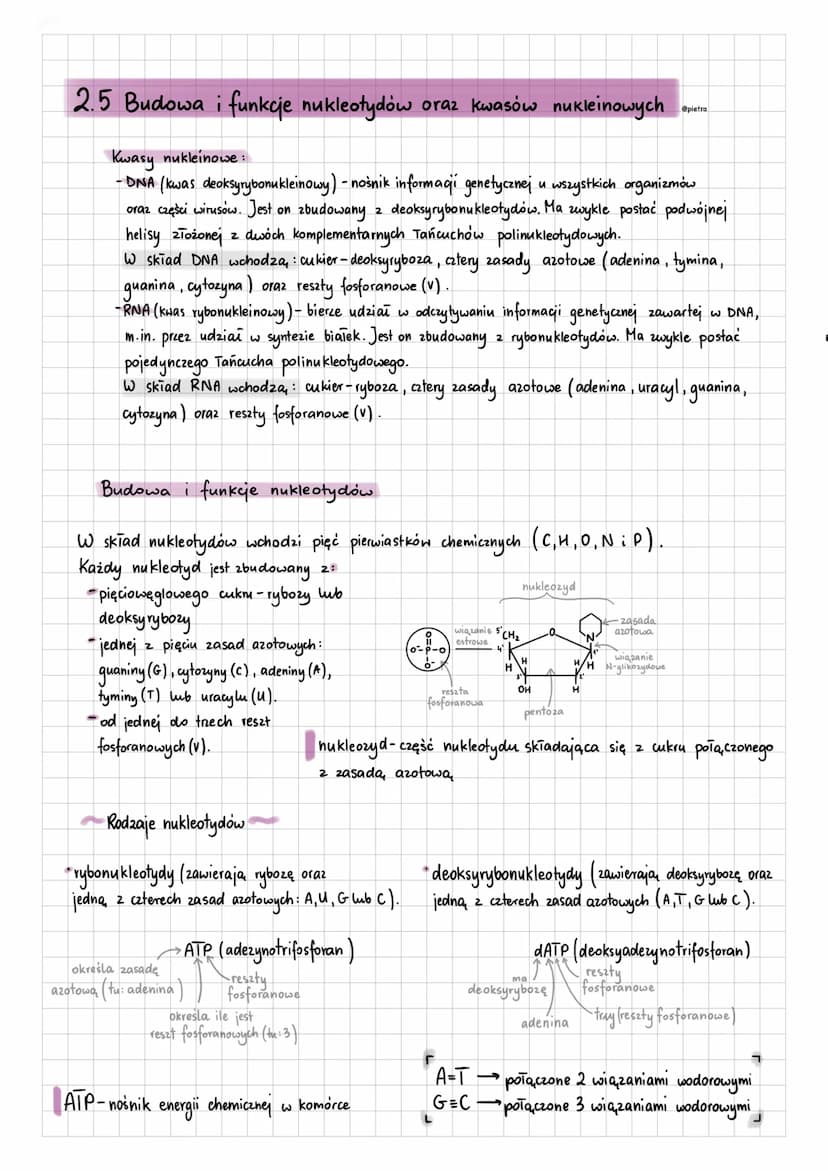 2.5 Budowa i funkcje nukleotydów oraz kwasów nukleinowych @pietra
Kwasy nukleinowe:
- DNA (kwas deoksyrybonukleinowy) - nośnik informacji genetycznej u wszystkich organizmów
oraz części wirusów. Jest on zbudowany z deoksyrybonukleotydów. Ma zwykle postać podwójnej
helisy złożonej z dwóch komplementarnych łańcuchów polinukleotydowych.
W skład DNA wchodzą: cukier - deoksyryboza, cztery zasady azotowe (adenina, tymina,
guanina, cytozyna) oraz reszty fosforanowe (V).
- RNA (kwas rybonukleinowy) - bierze udział w odczytywaniu informacji genetycznej zawartej w DNA,
m.in. przez udział w syntezie białek. Jest on zbudowany z rybonukleotydów. Ma zwykle postać
pojedynczego łańcucha polinukleotydowego.
W skład RNA wchodzą: cukier - ryboza, cztery zasady azotowe (adenina, uracyl, guanina,
cytozyna) oraz reszty fosforanowe (V).
Budowa i funkcje nukleotydów
W skład nukleotydów wchodzi pięć pierwiastków chemicznych (C, H, O, N i P).
Każdy nukleotyd jest zbudowany z:
- pięciowęglowego cukru - rybozy lub
deoksyrybozy
- jednej z pięciu zasad azotowych:
guaniny (G), cytozyny (C), adeniny (A),
tyminy (T) lub uracylu (U).
- od jednej do trzech reszt
fosforanowych (V).
nukleozyd
zasada
azotowa
wiązanie
estrowe
5'
CH₂
O
N
4'
1'
O
O⁻-P-O
O⁻
H
H
H
H
3'
2'
OH
H
wiązanie
N-glikozydowe
reszta
fosforanowa
pentoza
nukleozyd - część nukleotydu składająca się z cukru połączonego
z zasadą azotową
Rodzaje nukleotydów
• rybonukleotydy (zawierają rybozę oraz
jedną z czterech zasad azotowych: A, U, G lub C).
• deoksyrybonukleotydy (zawierają deoksyrybozę oraz
jedną z czterech zasad azotowych (A, T, G lub C).
ATP (adezynotrifosforan)
określa zasadę
azotową (tu: adenina)
reszty
fosforanowe
określa ile jest
reszt fosforanowych (tu: 3)
dATP (deoksyadezynotrifosforan)
ma
deoksyrybozę
reszty
fosforanowe
adenina
trzy (reszty fosforanowe)
ATP - nośnik energii chemicznej w komórce
A=T → połączone 2 wiązaniami wodorowymi
G≡C → połączone 3 wiązaniami wodorowymi